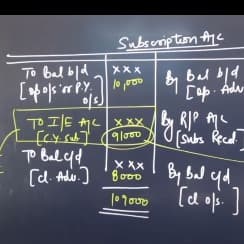 Subscription A/c
To Bal b/d
[op o/s or P.Y.
o/s]
x x x
10,000
By Bal b/d
[op. Adv.
To I/E A/c
[C.Y. Sub]
x x x
91000
By R/P A/c
[Subs Recd.
To Bal c/d
[cl. Adv.]
x x
8000
By Bal c/d
[cl o/s.]
109000